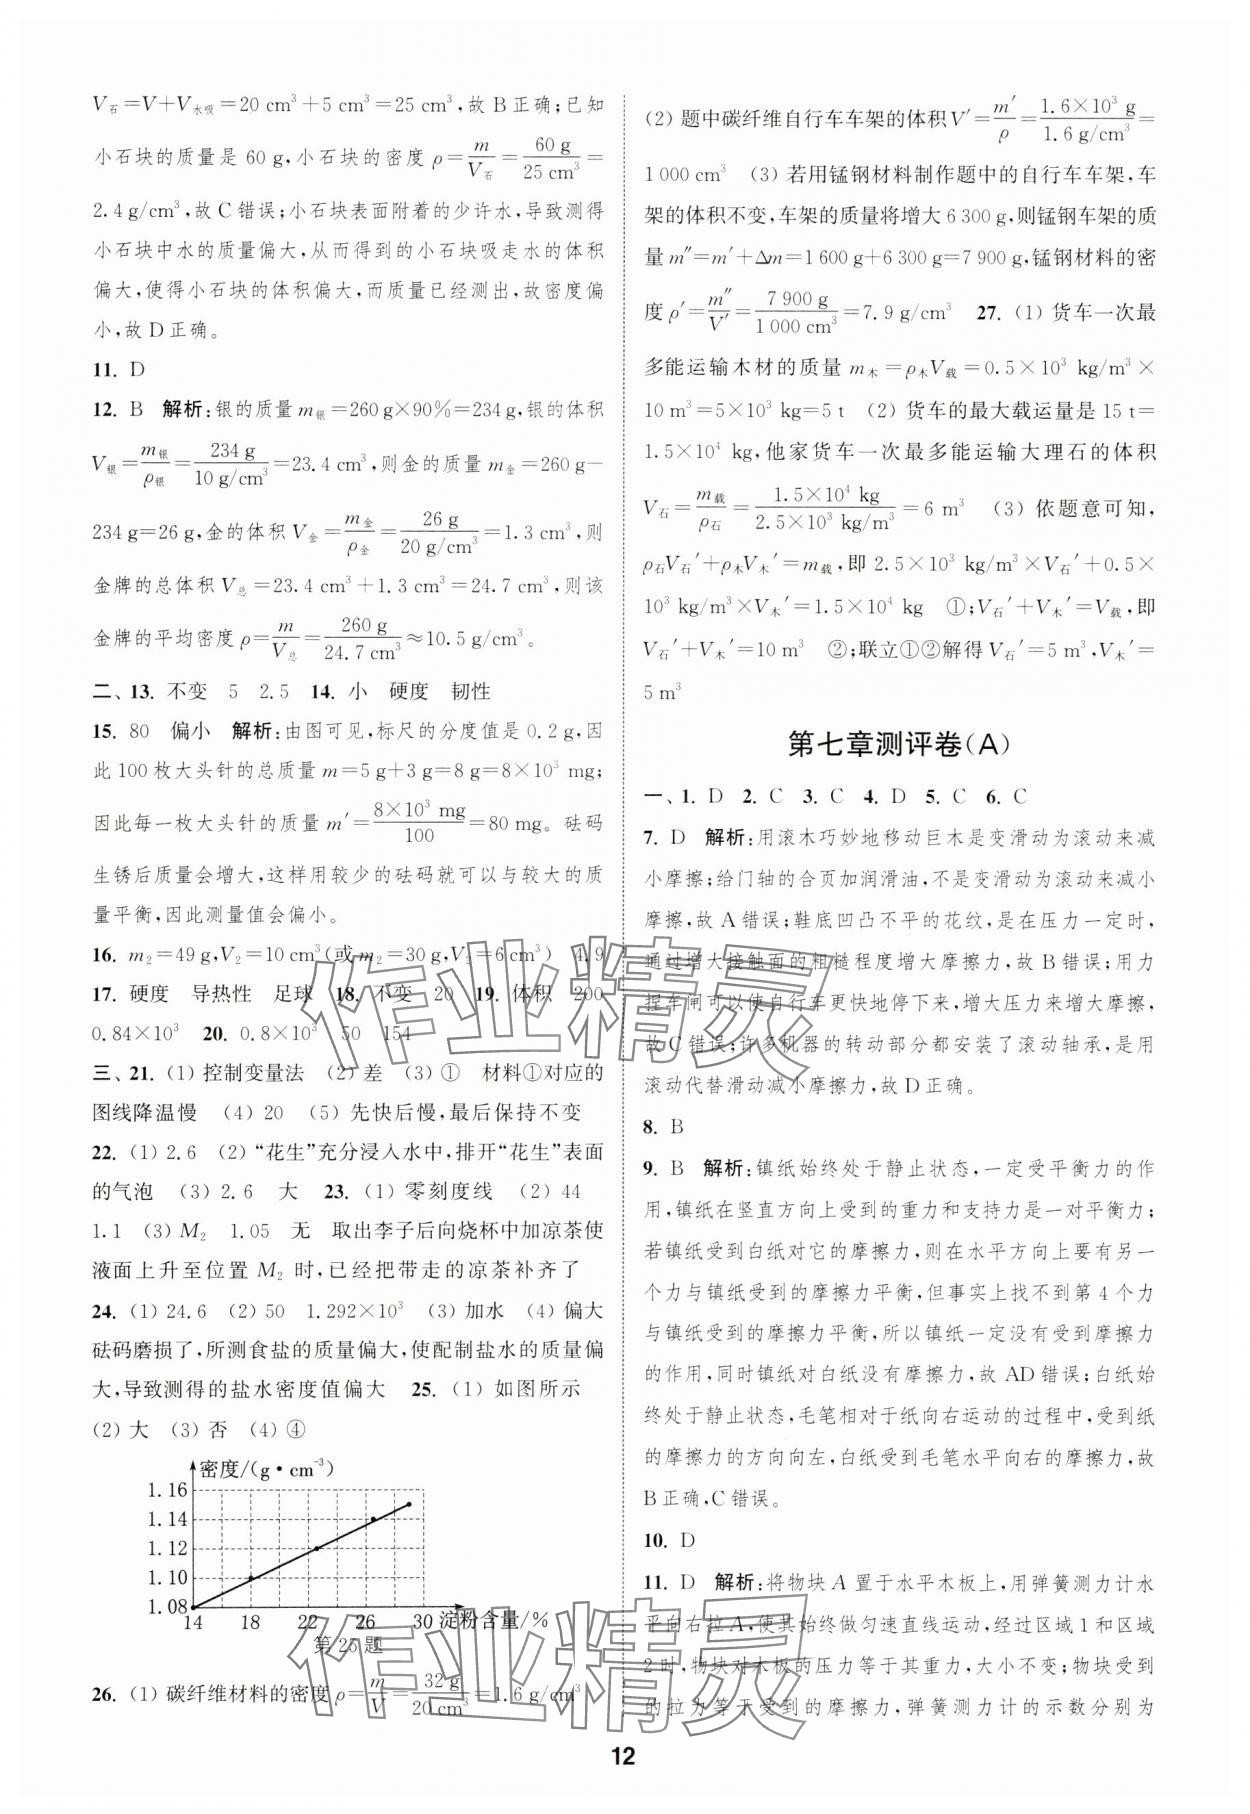 V石=V+V水吸=20 cm³+5 cm³=25 cm³,故 B 正确;已知
小石块的质量是 60 g,小石块的密度 ρ=m/V石=60 g/25 cm³=
2.4 g/cm³,故 C 错误;小石块表面附着的少许水,导致测得
小石块中水的质量偏大,从而得到的小石块吸走水的体积
偏大,使得小石块的体积偏大,而质量已经测出,故密度偏
小,故 D 正确。
11. D
12. B 解析:银的质量 m银=260 g×90%=234 g,银的体积
V银=m银/ρ银=234 g/10 g/cm³=23.4 cm³,则金的质量 m金=260 g-
234 g=26 g,金的体积 V金=m金/ρ金=26 g/20 g/cm³=1.3 cm³,则
金牌的总体积 V总=23.4 cm³+1.3 cm³=24.7 cm³,则该
金牌的平均密度 ρ=m/V总=260 g/24.7 cm³≈10.5 g/cm³。
二、13. 不变 5 2.5 14. 小 硬度 韧性
15. 80 偏小 解析:由图可见,标尺的分度值是 0.2 g,因
此 100 枚大头针的总质量 m=5 g+3 g=8 g=8×10³ mg;
因此每一枚大头针的质量 m′=8×10³ mg/100=80 mg。砝码
生锈后质量会增大,这样用较少的砝码就可以与较大的质
量平衡,因此测量值会偏小。
16. m₂=49 g,V₂=10 cm³(或 m₂=30 g,V₂=6 cm³) 4.9
17. 硬度 导热性 足球 18. 不变 20 19. 体积 200
0.84×10³ 20. 0.8×10³ 50 154
三、21. (1) 控制变量法 (2) 差 (3) ① 材料①对应的
图线降温慢 (4) 20 (5) 先快后慢,最后保持不变
22. (1) 2.6 (2) “花生”充分浸入水中,排开“花生”表面
的气泡 (3) 2.6 大 23. (1) 零刻度线 (2) 44
1.1 (3) M₂ 1.05 无 取出李子后向烧杯中加凉茶使
液面上升至位置 M₂ 时,已经把带走的凉茶补齐了
24. (1) 24.6 (2) 50 1.292×10³ (3) 加水 (4) 偏大
砝码磨损了,所测食盐的质量偏大,使配制盐水的质量偏
大,导致测得的盐水密度值偏大 25. (1) 如图所示
(2) 大 (3) 否 (4) ④
密度/(g·cm⁻³)
1.16
1.14
1.12
1.10
1.08
14 18 22 26 30 淀粉含量/%
第 25 题
26. (1) 碳纤维材料的密度 ρ=m/V=32 g/20 cm³=1.6 g/cm³
(2) 题中碳纤维自行车车架的体积 V′=m′/ρ=1.6×10³ g/1.6 g/cm³=
1 000 cm³ (3) 若用锰钢材料制作题中的自行车车架,车
架的体积不变,车架的质量将增大 6 300 g,则锰钢车架的质
量 m″=m′+Δm=1 600 g+6 300 g=7 900 g,锰钢材料的密
度 ρ′=m″/V′=7 900 g/1 000 cm³=7.9 g/cm³ 27. (1) 货车一次最
多能运输木材的质量 m木=ρ木V载=0.5×10³ kg/m³×
10 m³=5×10³ kg=5 t (2) 货车的最大载运量是 15 t=
1.5×10⁴ kg,他家货车一次最多能运输大理石的体积
V石=m载/ρ石=1.5×10⁴ kg/2.5×10³ kg/m³=6 m³ (3) 依题意可知,
ρ石V石′+ρ木V木′=m载,即 2.5×10³ kg/m³×V石′+0.5×
10³ kg/m³×V木′=1.5×10⁴ kg ①;V石′+V木′=V载,即
V石′+V木′=10 m³ ②;联立①②解得 V石′=5 m³,V木′=
5 m³
第七章测评卷(A)
一、1. D 2. C 3. C 4. D 5. C 6. C
7. D 解析:用滚木巧妙地移动巨木是变滑动为滚动来减
小摩擦;给门轴的合页加润滑油,不是变滑动为滚动来减小
摩擦,故 A 错误;鞋底凹凸不平的花纹,是在压力一定时,
通过增大接触面的粗糙程度增大摩擦力,故 B 错误;用力
捏车闸可以使自行车更快地停下来,增大压力来增大摩擦,
故 C 错误;许多机器的转动部分都安装了滚动轴承,是用
滚动代替滑动减小摩擦力,故 D 正确。
8. B
9. B 解析:镇纸始终处于静止状态,一定受平衡力的作
用,镇纸在竖直方向上受到的重力和支持力是一对平衡力;
若镇纸受到白纸对它的摩擦力,则在水平方向上要有另一
个力与镇纸受到的摩擦力平衡,但事实上找不到第 4 个力
与镇纸受到的摩擦力平衡,所以镇纸一定没有受到摩擦力
的作用,同时镇纸对白纸没有摩擦力,故 AD 错误;白纸始
终处于静止状态,毛笔相对于纸向右运动的过程中,受到纸
的摩擦力的方向向左,白纸受到毛笔水平向右的摩擦力,故
B 正确,C 错误。
10. D
11. D 解析:将物块 A 置于水平木板上,用弹簧测力计水
平向右拉 A,使其始终做匀速直线运动,经过区域 1 和区域
2 时,物块对木板的压力等于其重力,大小不变;物块受到
的拉力等于受到的摩擦力,弹簧测力计的示数分别为
12
作业精灵
作业精灵